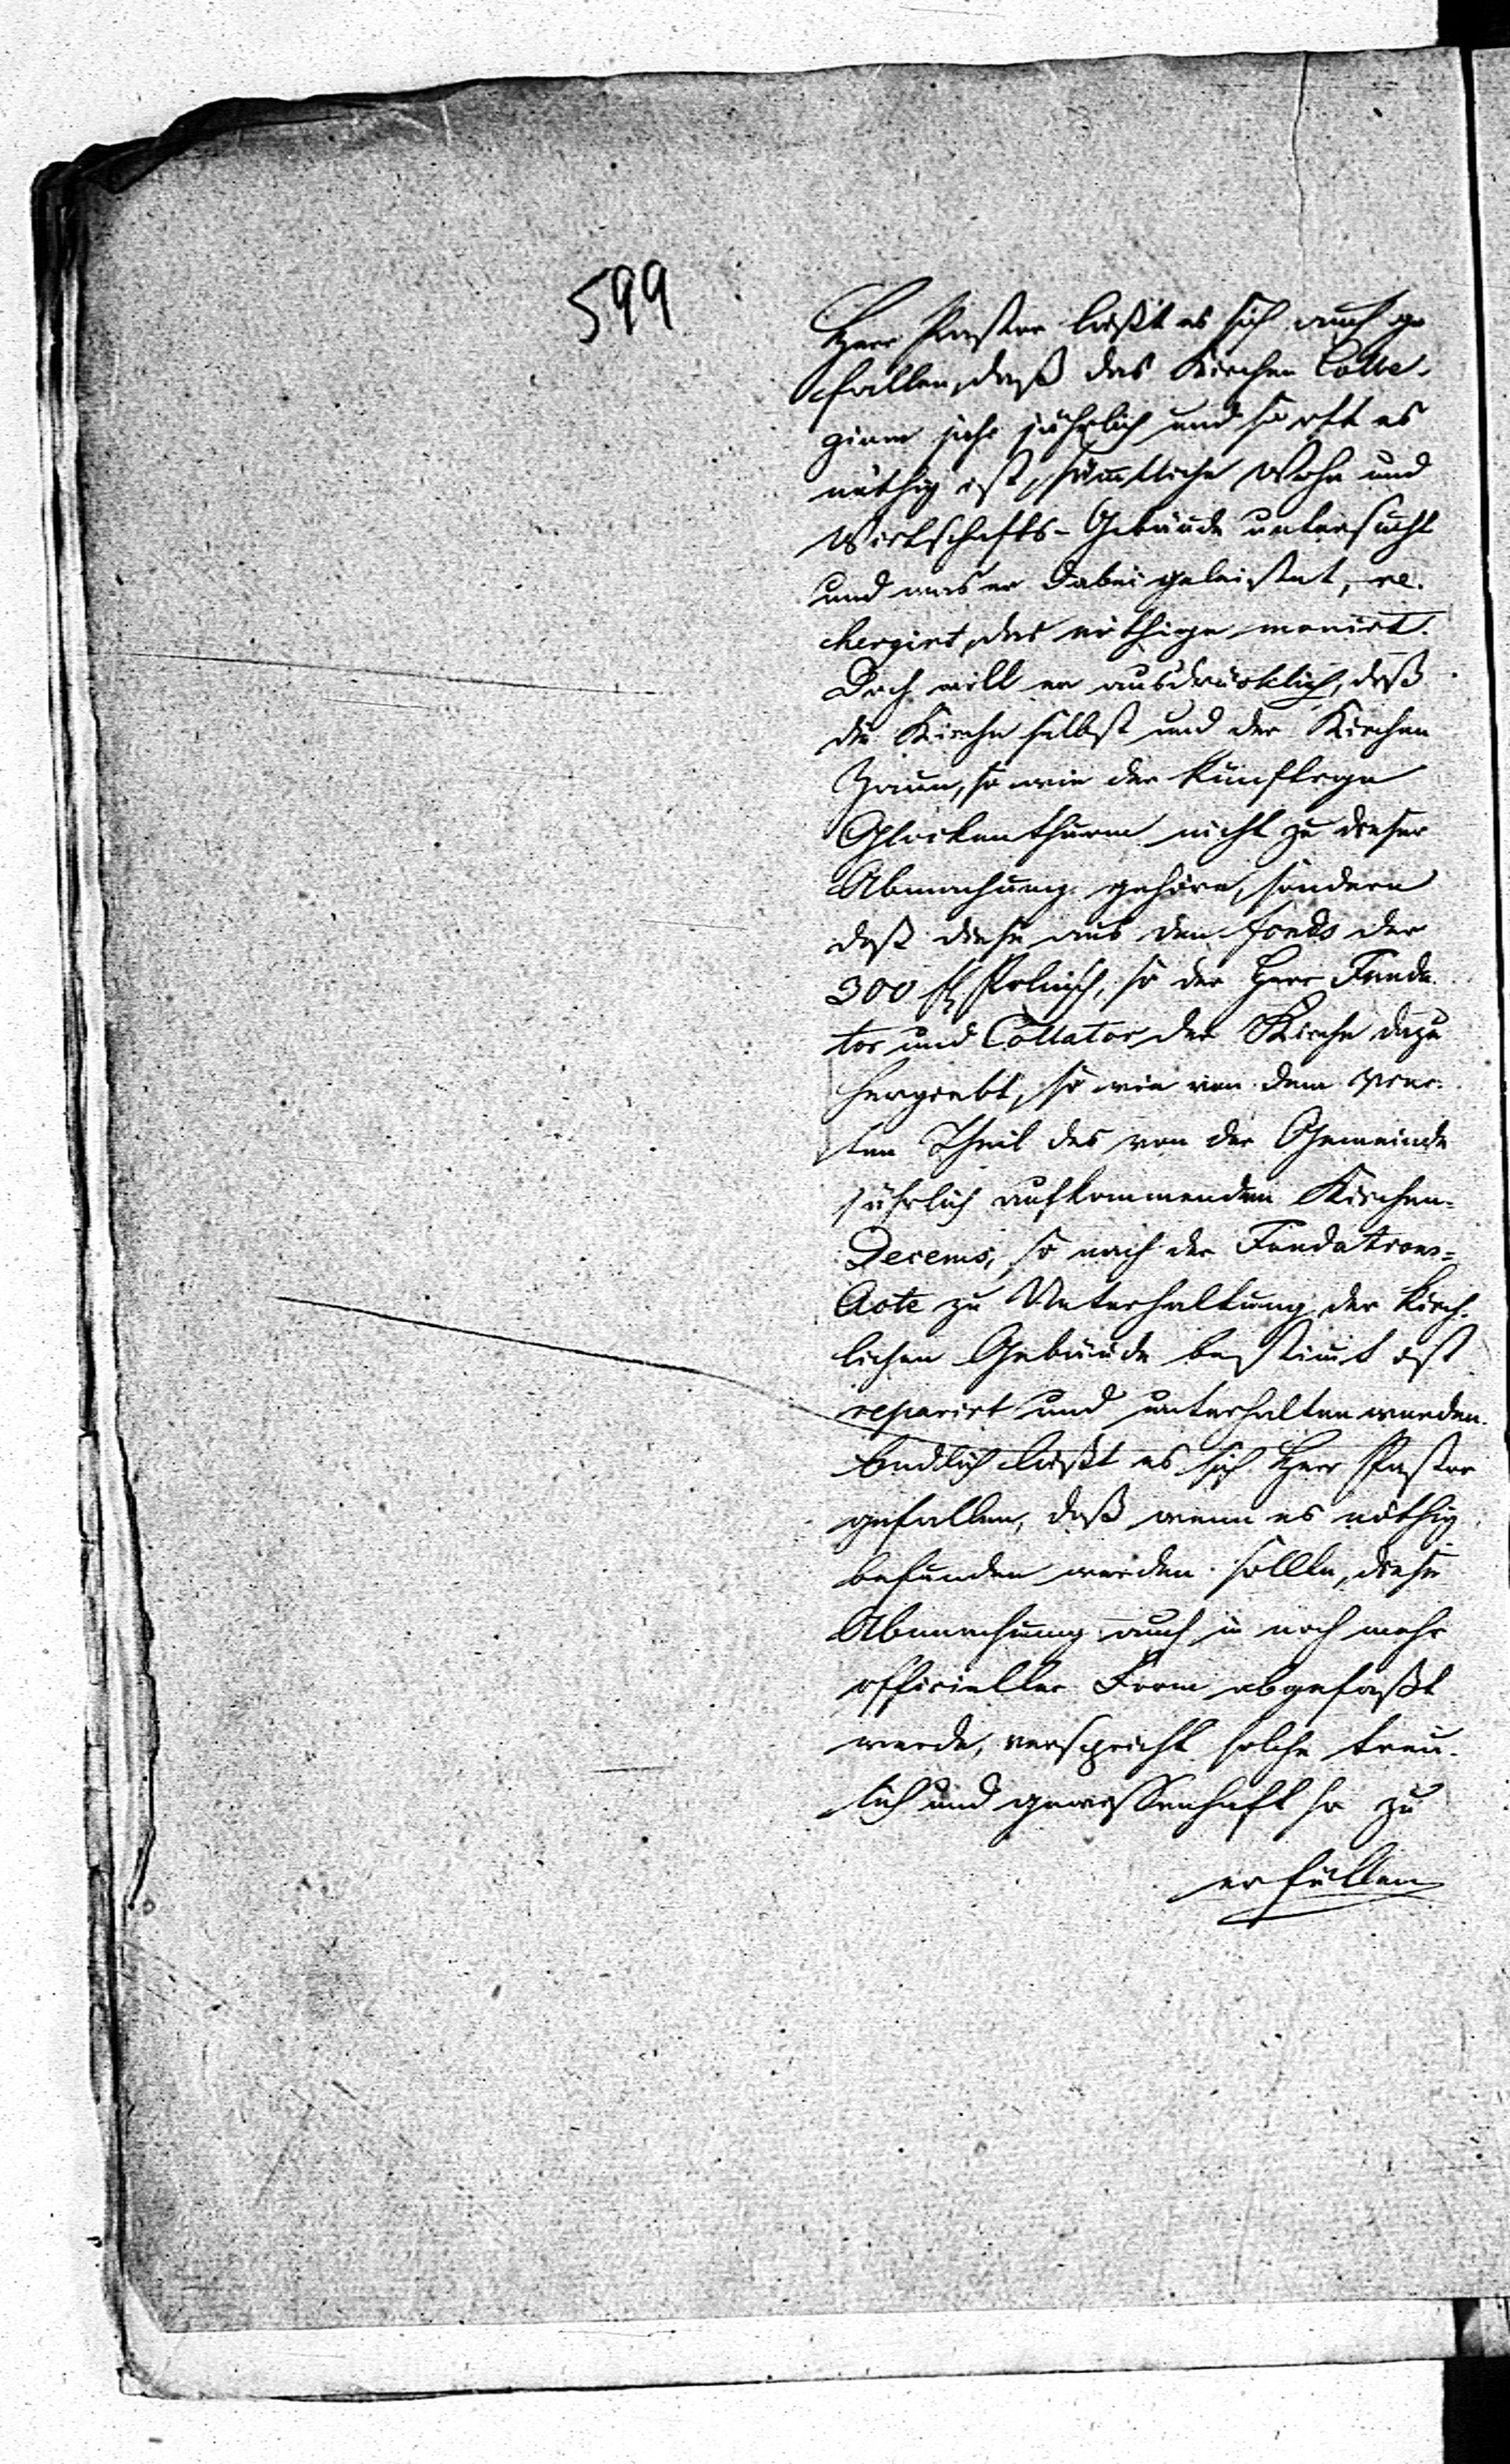 599
Herr Pastor läßt es sich auch ge
fallen, daß das Kirchen Colle-
gium jahr jährlich und so oft es
nöthig ist, sämtliche Wohn und
Wirthschafts-Gebäude untersucht
und was er dabei geleistet, re-
chergirt, das nöthige monirt.
Doch will er ausdrücklich, daß
die Kirche selbst und der Kirchen
Zaun, so wie der künftige
Glockenthurm nicht zu dieser
Abmachung gehöre, sondern
daß diese aus den fonds der
300 fl Polnisch, so der Herr Funda
tor und Collator der Kirche dazu
hergiebt, so wie von dem
ten Theil des von der Gemeinde
jährlich aufkommenden Kirchen-
Decems, so nach der Fundations-
Acte zu Unterhaltung der kirch-
lichen Gebäude bestimt ist
reparirt und unterhalten werden.
Endlich läßt es sich Herr Pastor
gefallen, daß wenn es nöthig
befunden werden sollte, diese
Abmachung auch in noch mehr
officieller Form abgefaßt
werde, verspricht solche treu-
lich und gewissenhaft so zu
erfüllen